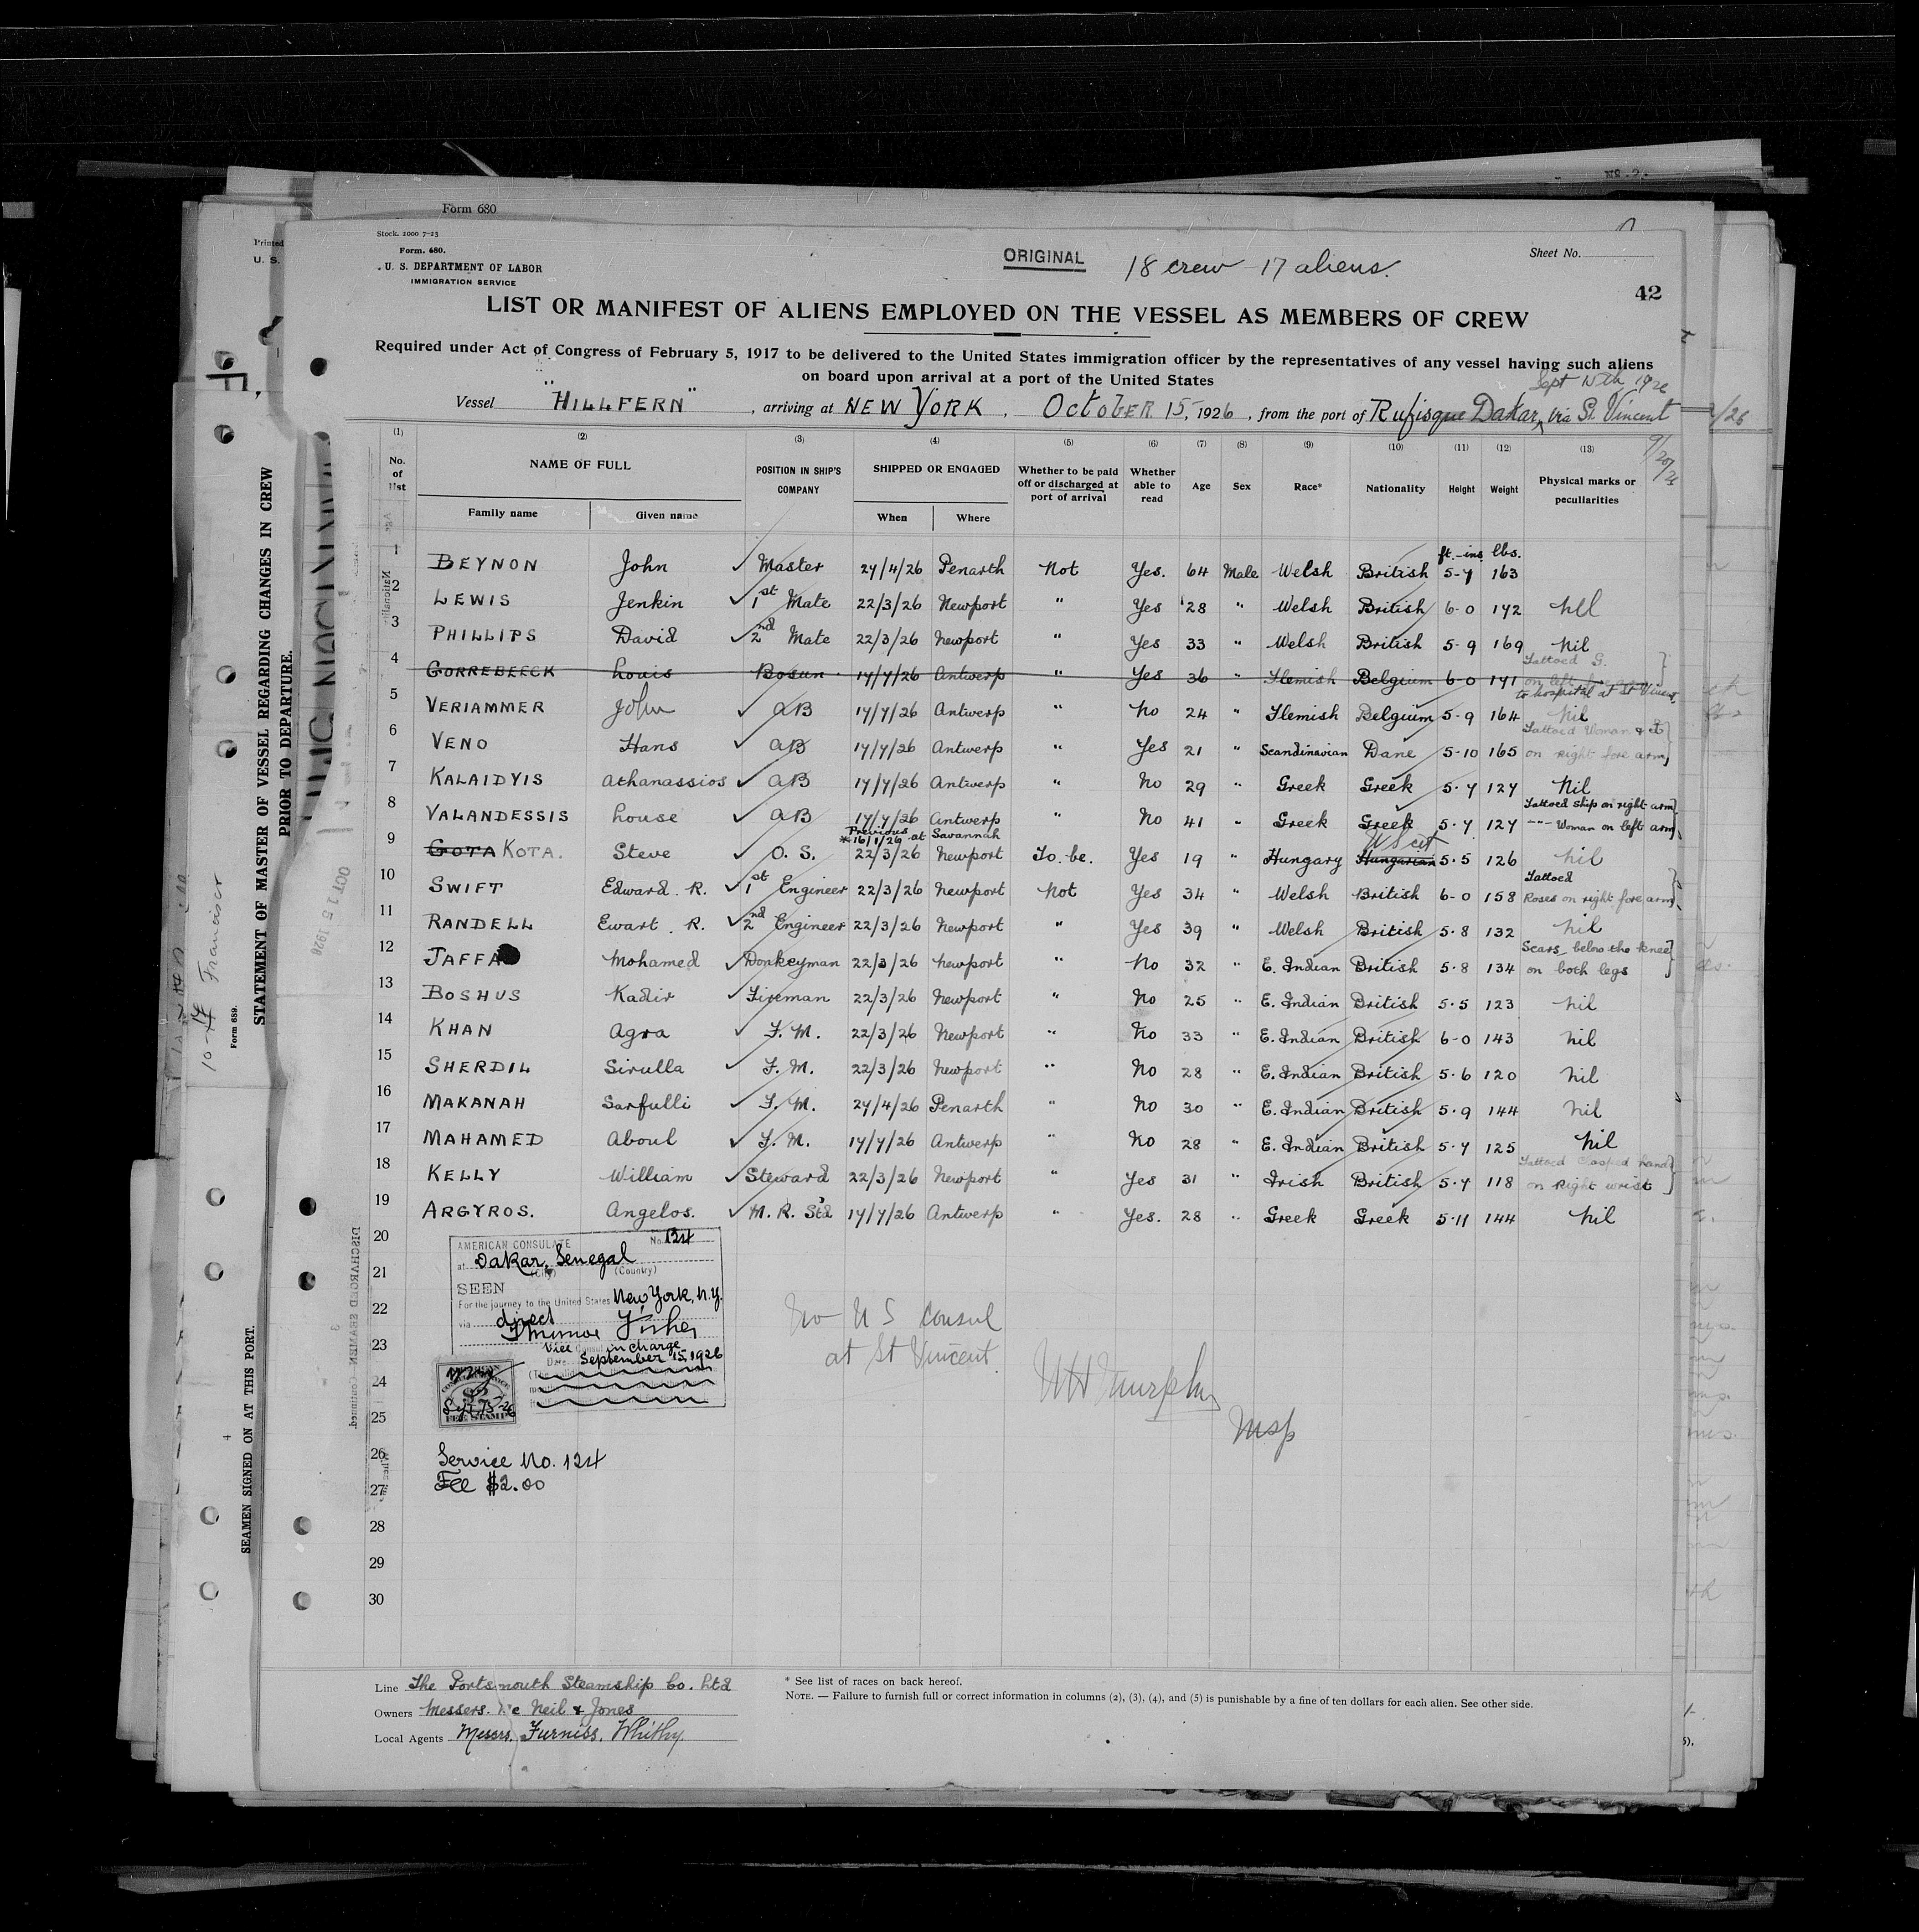 No. 2.
Form 680
Printed
U. S.
Stock. 2000 7-23
Form. 680.
U. S. DEPARTMENT OF LABOR
IMMIGRATION SERVICE
ORIGINAL
18 crew 17 aliens.
Sheet No.
42
LIST OR MANIFEST OF ALIENS EMPLOYED ON THE VESSEL AS MEMBERS OF CREW
Required under Act of Congress of February 5, 1917 to be delivered to the United States immigration officer by the representatives of any vessel having such aliens
on board upon arrival at a port of the United States
Sept 15th 1926
Vessel "HILLFERN", arriving at NEW YORK, OCTOBER 15, 1926, from the port of Rufisque Dakar, via St. Vincent
9/20/26
(1) (2) (3) (4) (5) (6) (7) (8) (9) (10) (11) (12) (13)
No. of list
NAME OF FULL
Family name
Given name
POSITION IN SHIP'S COMPANY
SHIPPED OR ENGAGED
When
Where
Whether to be paid off or discharged at port of arrival
Whether able to read
Age
Sex
Race*
Nationality
Height
Weight
Physical marks or peculiarities
ft.-ins lbs.
1 BEYNON John ✓ Master 27/4/26 Penarth Not Yes. 64 Male Welsh British 5-7 163
2 LEWIS Jenkin ✓ 1st Mate 22/3/26 Newport " Yes 28 " Welsh British 6-0 172 nil
3 PHILLIPS David ✓ 2nd Mate 22/3/26 Newport " Yes 33 " Welsh British 5-9 169 nil
4 GORREBEECK Louis Bosun 17/7/26 Antwerp " Yes 36 " Flemish Belgium 6-0 171 Tattoed G. on left fore arm
to hospital at St Vincent
5 VERIAMMER John ✓ AB 17/7/26 Antwerp " No 24 " Flemish Belgium 5-9 164 nil
6 VENO Hans ✓ AB 17/7/26 Antwerp " Yes 21 " Scandinavian Dane 5-10 165 Tattoed Woman & on right fore arm
7 KALAIDYIS Athanassios ✓ AB 17/7/26 Antwerp " No 29 " Greek Greek 5-7 127 Nil
8 VALANDESSIS Louse ✓ AB 17/7/26 Antwerp " No 41 " Greek Greek 5-7 127 Tattoed Ship on right arm -"- Woman on left arm
Previous * 16/1/26 at Savannah
9 GOTA KOTA. Steve ✓ O. S. 22/3/26 Newport To. be. Yes 19 " Hungary Hungarian U S cit 5-5 126 nil
10 SWIFT Edward. R. ✓ 1st Engineer 22/3/26 Newport Not Yes 34 " Welsh British 6-0 158 Tattoed Roses on right fore arm
11 RANDELL Ewart. R. ✓ 2nd Engineer 22/3/26 Newport " Yes 39 " Welsh British 5-8 132 nil
12 JAFFA Mohamed ✓ Donkeyman 22/3/26 Newport " No 32 " E. Indian British 5-8 134 Scars below the knee on both legs
13 BOSHUS Kadir ✓ Fireman 22/3/26 Newport " No 25 " E. Indian British 5-5 123 nil
14 KHAN Agra ✓ F. M. 22/3/26 Newport " No 33 " E. Indian British 6-0 143 nil
15 SHERDIL Sirulla ✓ F. M. 22/3/26 Newport " No 28 " E. Indian British 5-6 120 nil
16 MAKANAH Sarfulli ✓ F. M. 27/4/26 Penarth " No 30 " E. Indian British 5-9 144 nil
17 MAHAMED Aboul ✓ F. M. 17/7/26 Antwerp " No 28 " E. Indian British 5-7 125 nil
18 KELLY William ✓ Steward 22/3/26 Newport " Yes 31 " Irish British 5-7 118 Tattoed Clasped hand on Right wrist
19 ARGYROS. Angelos. ✓ M. R. Std 17/7/26 Antwerp " Yes. 28 " Greek Greek 5-11 144 nil
20
21
22
23
24
25
26
27
28
29
30
AMERICAN CONSULATE No. 124
at Dakar, Senegal
(City) (Country)
SEEN
For the journey to the United States New York, N.Y.
via direct
Fisher
Vice Consul in charge
Date September 15, 1926
$2
FEE STAMP
Service No. 124
Fee $2.00
No U S Consul
at St Vincent
Murphy
Line The Portsmouth Steamship Co. Ltd
Owners Messers. Mc Neil & Jones
Local Agents Messrs. Furniss, Whithy
* See list of races on back hereof.
NOTE. — Failure to furnish full or correct information in columns (2), (3), (4), and (5) is punishable by a fine of ten dollars for each alien. See other side.
STATEMENT OF MASTER OF VESSEL REGARDING CHANGES IN CREW
PRIOR TO DEPARTURE.
Form 689.
SEAMEN SIGNED ON AT THIS PORT.
DISCHARGED SEAMEN Continued
OCT 15 1926
Francisco